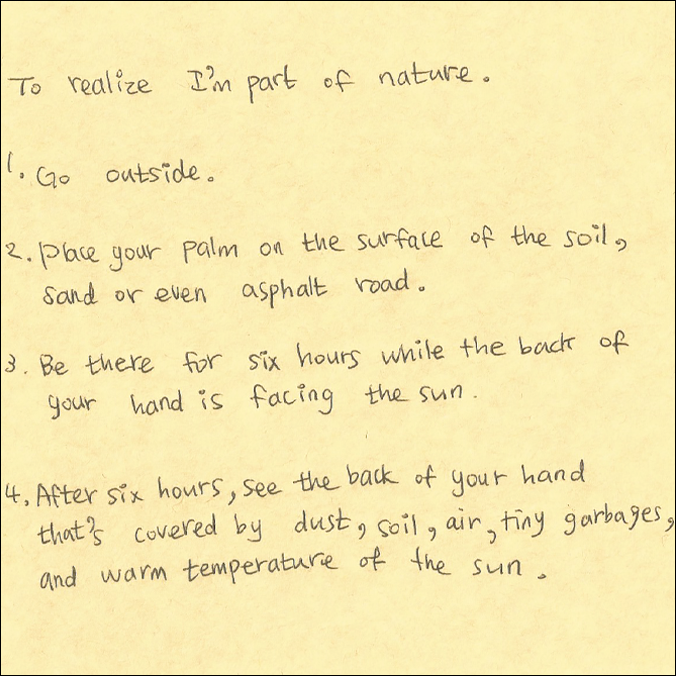 To realize I'm part of nature.
1. Go outside.
2. Place your palm on the surface of the soil,
sand or even asphalt road.
3. Be there for six hours while the back of
your hand is facing the sun.
4. After six hours, see the back of your hand
that's covered by dust, soil, air, tiny garbages,
and warm temperature of the sun.